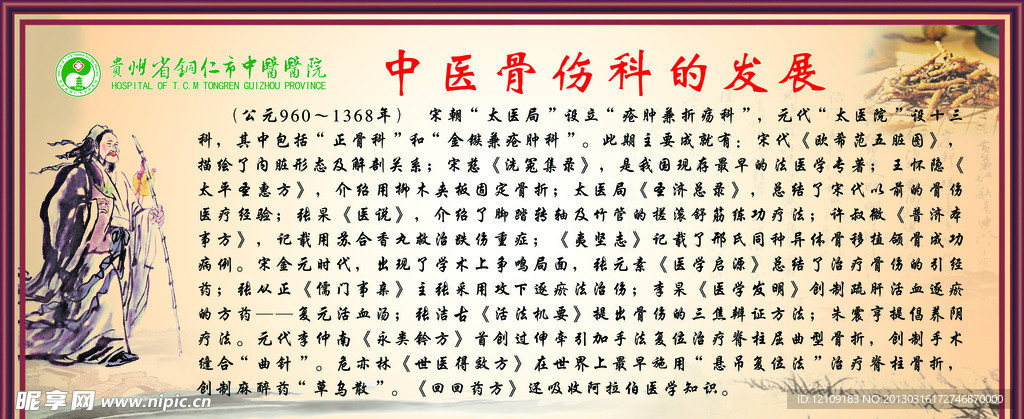 贵州省铜仁市中醫醫院
HOSPITAL OF T.C.M TONGREN GUIZHOU PROVINCE
中医骨伤科的发展
（公元960～1368年） 宋朝“太医局”设立“疮肿兼折疡科”，元代“太医院”设十三
科，其中包括“正骨科”和“金镞兼疮肿科”。此期主要成就有：宋代《欧希范五脏图》，
描绘了内脏形态及解剖关系；宋慈《洗冤集录》，是我国现存最早的法医学专著；王怀隐《
太平圣惠方》，介绍用柳木夹板固定骨折；太医局《圣济总录》，总结了宋代以前的骨伤
医疗经验；张杲《医说》，介绍了脚踏转轴及竹管的搓滚舒筋练功疗法；许叔微《普济本
事方》，记载用苏合香丸救治跌伤重症；《夷坚志》记载了邢氏同种异体骨移植颌骨成功
病例。宋金元时代，出现了学术上争鸣局面，张元素《医学启源》总结了治疗骨伤的引经
药；张从正《儒门事亲》主张采用攻下逐瘀法治伤；李杲《医学发明》创制疏肝活血逐瘀
的方药——复元活血汤；张洁古《活法机要》提出骨伤的三焦辩证方法；朱震亨提倡养阴
疗法。元代李仲南《永类钤方》首创过伸牵引加手法复位治疗脊柱屈曲型骨折，创制手术
缝合“曲针”。危亦林《世医得效方》在世界上最早施用“悬吊复位法”治疗脊柱骨折，
创制麻醉药“草乌散”。《回回药方》还吸收阿拉伯医学知识。
昵享网 www.nipic.cn
ID:12109183 NO:20130316172746870000